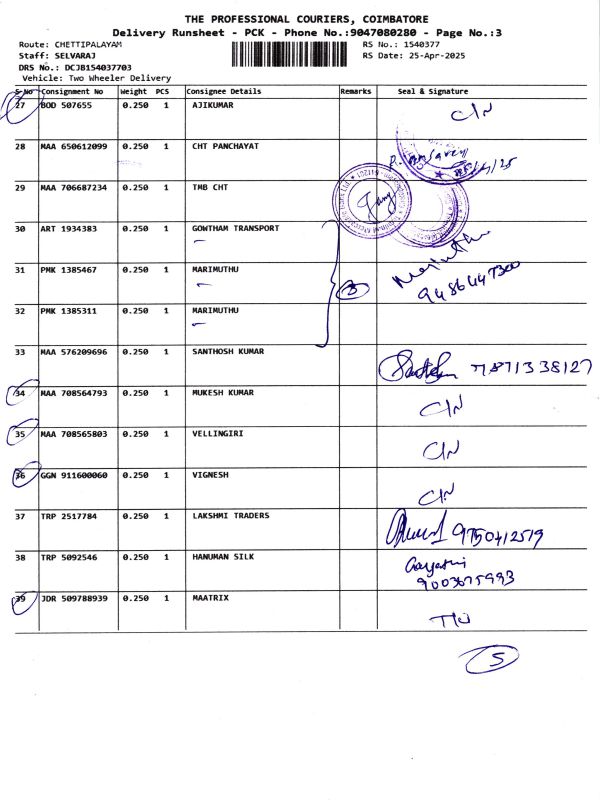 THE PROFESSIONAL COURIERS, COIMBATORE
Delivery Runsheet - PCK - Phone No.:9047080280 - Page No.:3
Route: CHETTIPALAYAM
RS No.: 1540377
Staff: SELVARAJ
RS Date: 25-Apr-2025
DRS No.: DCJB154037703
Vehicle: Two Wheeler Delivery
S.No Consignment No Weight PCS Consignee Details Remarks Seal & Signature
27 BOD 507655 0.250 1 AJIKUMAR C/N
28 MAA 650612099 0.250 1 CHT PANCHAYAT
29 MAA 706687234 0.250 1 TMB CHT
30 ART 1934383 0.250 1 GOWTHAM TRANSPORT
31 PMK 1385467 0.250 1 MARIMUTHU 3 Marimuthu
9486447300
32 PMK 1385311 0.250 1 MARIMUTHU
33 MAA 576209696 0.250 1 SANTHOSH KUMAR 7871338127
34 MAA 708564793 0.250 1 MUKESH KUMAR C/N
35 MAA 708565803 0.250 1 VELLINGIRI C/N
36 GGN 911600060 0.250 1 VIGNESH C/N
37 TRP 2517784 0.250 1 LAKSHMI TRADERS 9750412519
38 TRP 5092546 0.250 1 HANUMAN SILK Gayathri
9003675993
39 JDR 509788939 0.250 1 MAATRIX
5